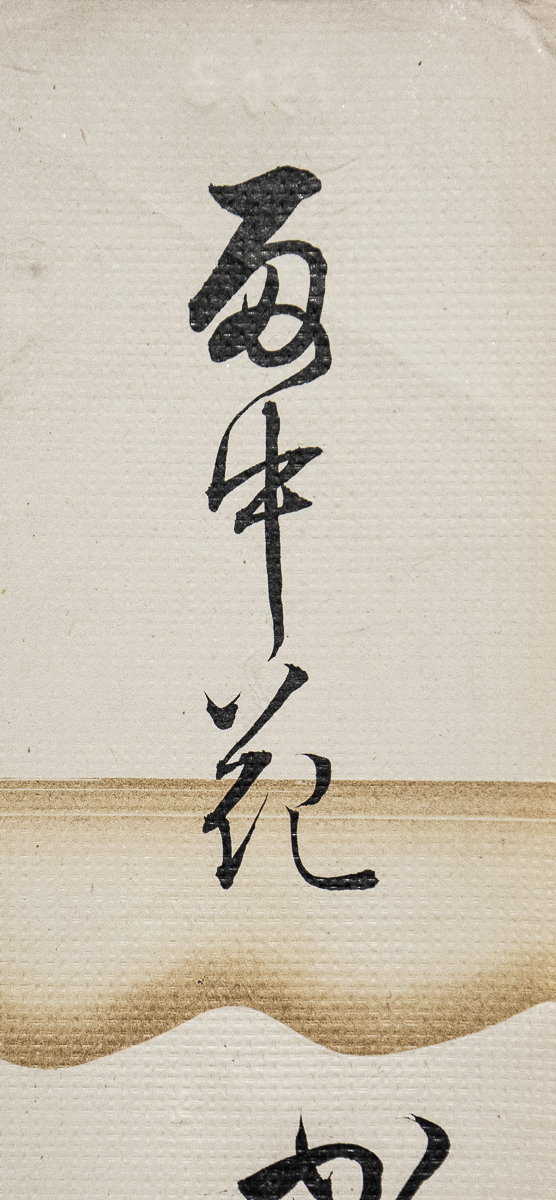 雨中花